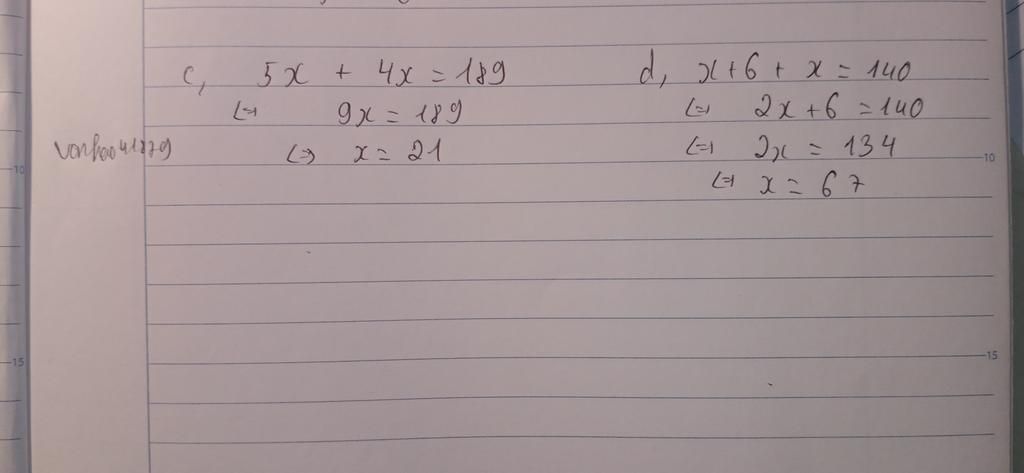 c, 5x + 4x = 189
⇔ 9x = 189
⇔ x = 21
d, x+6 + x = 140
⇔ 2x + 6 = 140
⇔ 2x = 134
⇔ x = 67
10
10
15
15